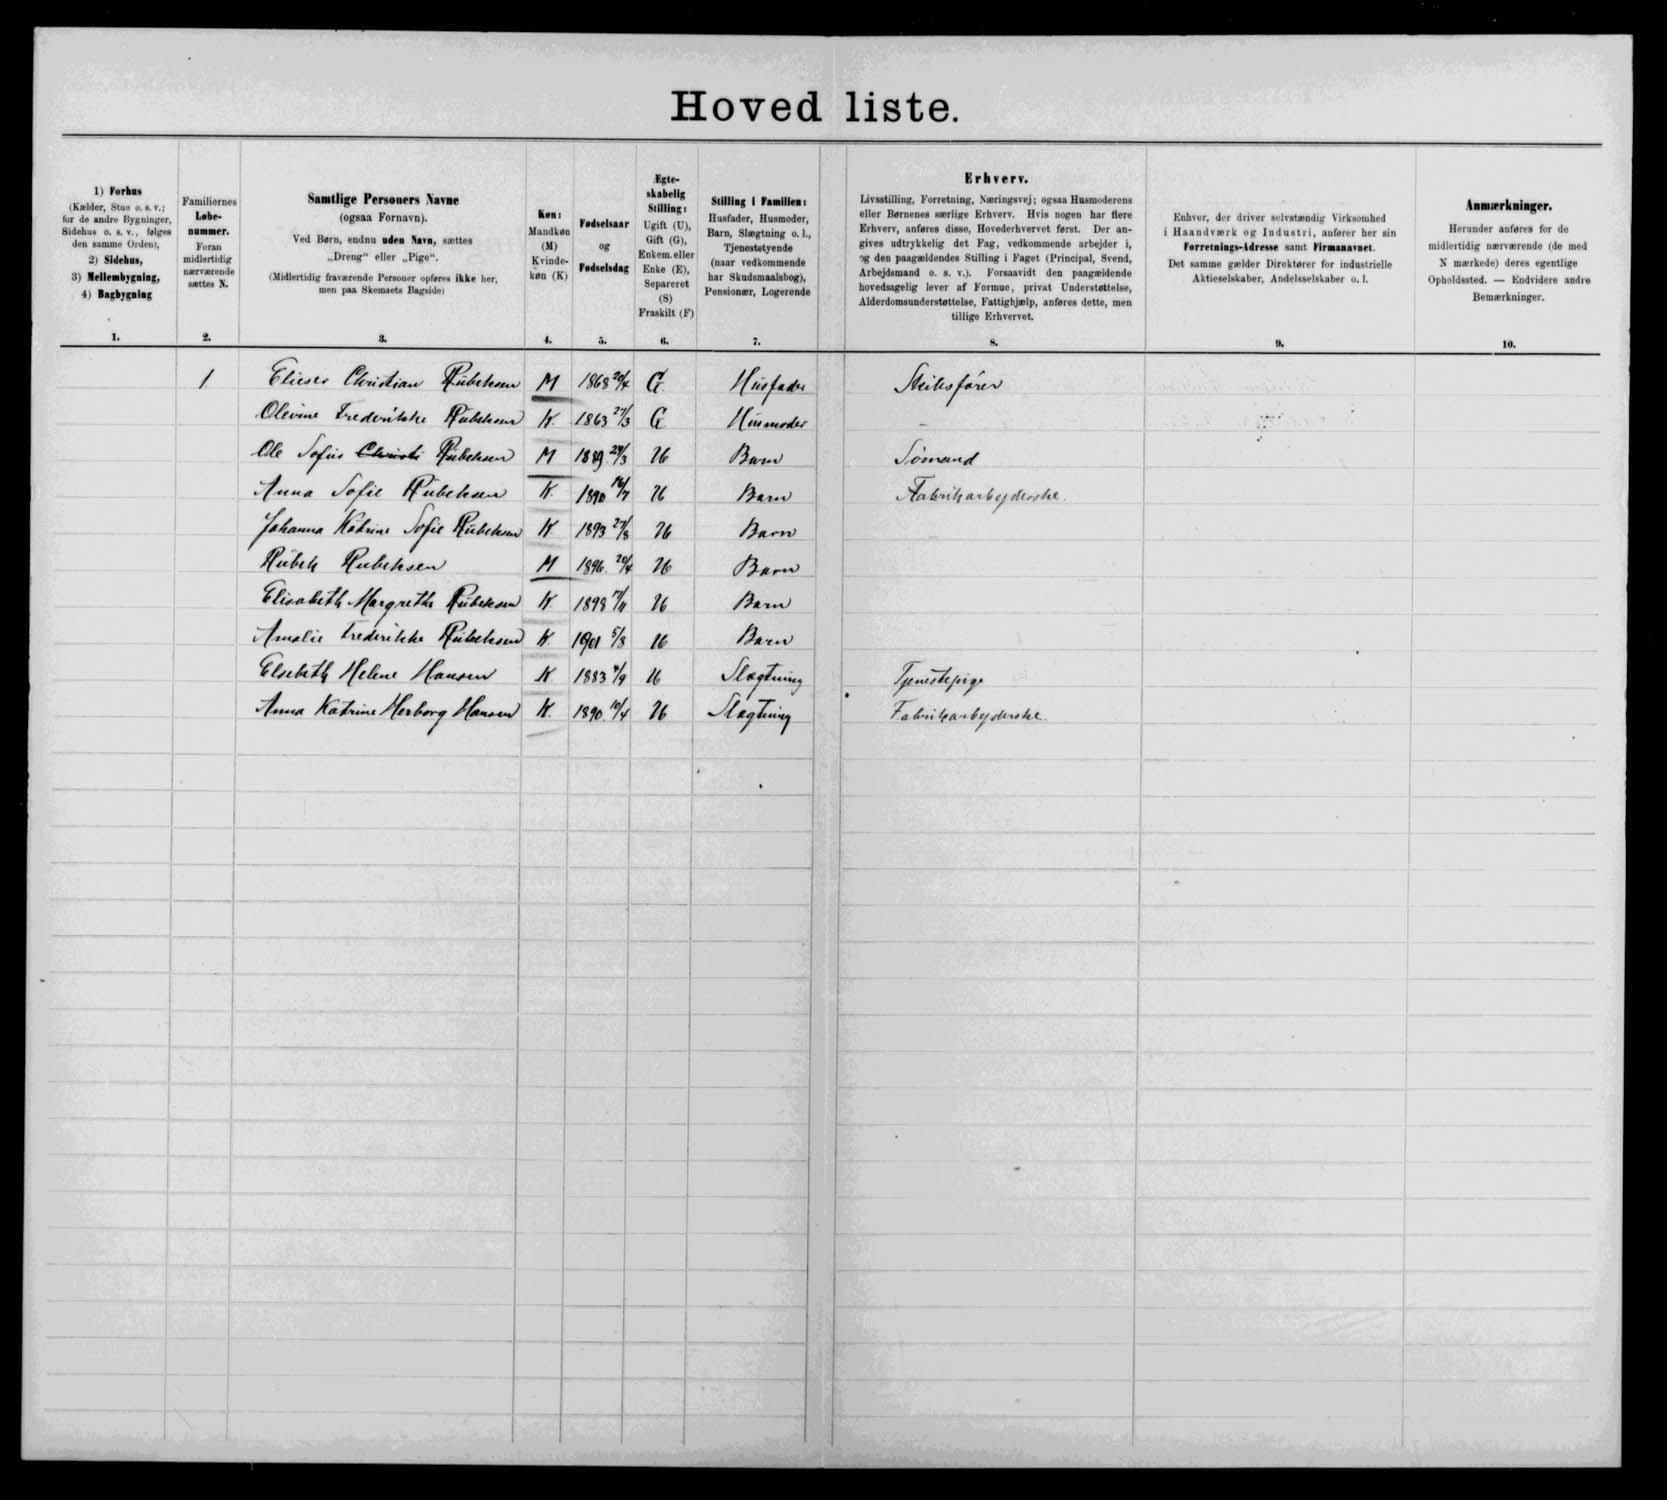 Hoved liste.
1) Forhus
(Kælder, Stue o. s. v.;
for de andre Bygninger,
Sidehus o. s. v., følges
den samme Orden),
2) Sidehus,
3) Mellembygning,
4) Bagbygning
1.
Familiernes
Løbe-
nummer.
Foran
midlertidig
nærværende
sættes N.
2.
Samtlige Personers Navne
(ogsaa Fornavn).
Ved Børn, endnu uden Navn, sættes
„Dreng“ eller „Pige“.
(Midlertidig fraværende Personer opføres ikke her,
men paa Skemaets Bagside)
3.
Køn:
Mandkøn
(M)
Kvinde-
køn (K)
4.
Fødselsaar
og
Fødselsdag
5.
Ægte-
skabelig
Stilling:
Ugift (U),
Gift (G),
Enkem. eller
Enke (E),
Separeret
(S)
Fraskilt (F)
6.
Stilling i Familien:
Husfader, Husmoder,
Barn, Slægtning o. l.,
Tjenestetyende
(naar vedkommende
har Skudsmaalsbog),
Pensionær, Logerende
7.
Erhverv.
Livsstilling, Forretning, Næringsvej; ogsaa Husmoderens
eller Børnenes særlige Erhverv. Hvis nogen har flere
Erhverv, anføres disse, Hovederhvervet først. Der an-
gives udtrykkelig det Fag, vedkommende arbejder i,
og den paagældendes Stilling i Faget (Principal, Svend,
Arbejdsmand o. s. v.). Forsaavidt den paagældende
hovedsagelig lever af Formue, privat Understøttelse,
Alderdomsunderstøttelse, Fattighjælp, anføres dette, men
tillige Erhvervet.
8.
Enhver, der driver selvstændig Virksomhed
i Haandværk og Industri, anfører her sin
Forretnings-Adresse samt Firmanavnet.
Det samme gælder Direktører for industrielle
Aktieselskaber, Andelsselskaber o. l.
9.
Anmærkninger.
Herunder anføres for de
midlertidig nærværende (de med
N mærkede) deres egentlige
Opholdssted. — Endvidere andre
Bemærkninger.
10.
1 Elieser Christian Rübeksen M 1868 20/4 G Husfader Skibsfører
Olevine Frederikke Rübeksen K. 1863 27/3 G Husmoder –
Ole Sofus Christi Rübeksen M 1889 Ug Barn Sømand
Anna Sofie Rübeksen K. 1890 16/7 Ug Barn Fabrikarbejderske.
Johanna Katrine Sofie Rübeksen K 1893 27/8 Ug Barn
Rübek Rubeksen M 1896 20/4 Ug Barn
Elisabeth Margrethe Rübeksen K. 1898 17/11 Ug Barn
Amalie Frederikke Rübeksen K. 1901 5/8 Ug Barn
Elsebeth Helene Hansen K 1883 4/9 Ug Slægtning Tjenestepige
Anna Katrine Herborg Hansen K. 1890 10/4 Ug Slægtning Fabrikarbejderske.